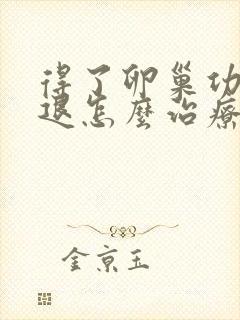 得了卵巢功
退怎麽治療
金京玉